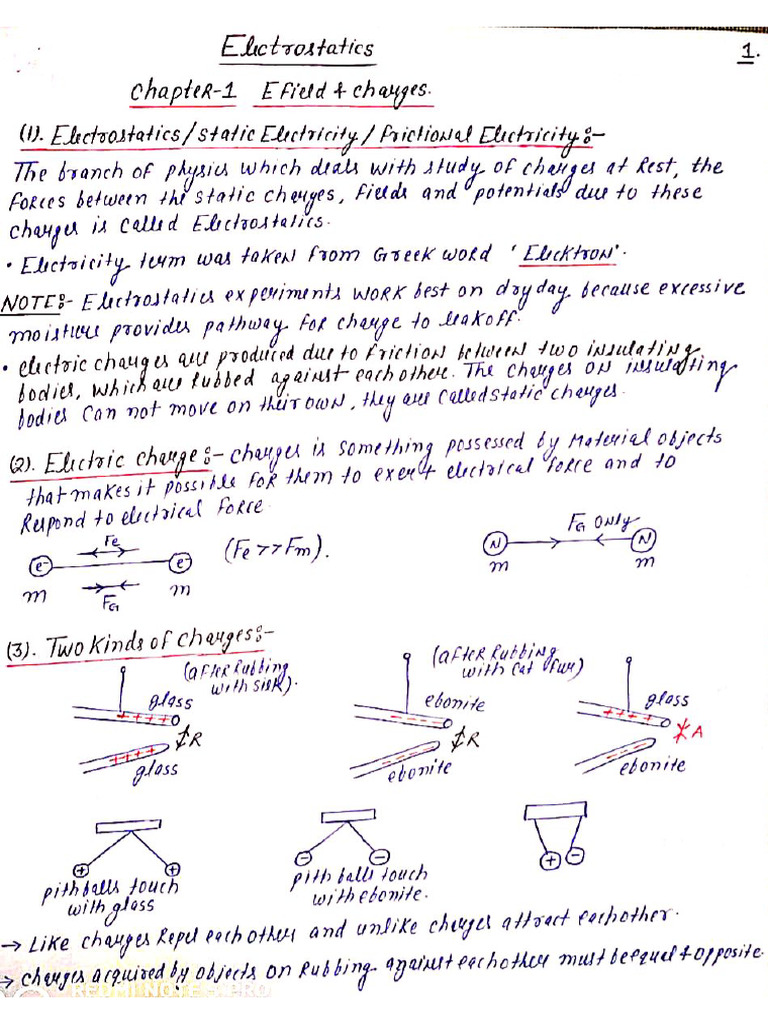 Electrostatics
1.
Chapter-1 E Field & charges.
(1). Electrostatics/Static Electricity/Frictional Electricity:-
The branch of physics which deals with study of charges at Rest, the
forces between the static charges, fields and potentials due to these
charges is called Electrostatics.
• Electricity term was taken from Greek word 'Elecktron'.
NOTE:- Electrostatics experiments work best on dry day because excessive
moisture provides pathway for charge to leakoff.
• electric charges are produced due to friction between two insulating
bodies, which are rubbed against each other. The charges on insulating
bodies can not move on their own, they are called static charges.
(2). Electric charge:- charges is something possessed by material objects
that makes it possible for them to exert electrical force and to
Respond to electrical force.
Fe
e- e- (Fe>>Fm).
m FG m
FG only
N N
m m
(3). Two Kinds of Charges:-
(after Rubbing
with silk).
glass
++++
R
++++
glass
(after Rubbing
with cat fur)
ebonite
----
R
----
ebonite
glass
++++
A
----
ebonite
+ +
pith balls touch
with glass
- -
pith balls touch
with ebonite.
+ -
→ Like charges Repel each other and unlike charges attract each other.
→ charges acquired by objects on Rubbing against each other must be equal & opposite.